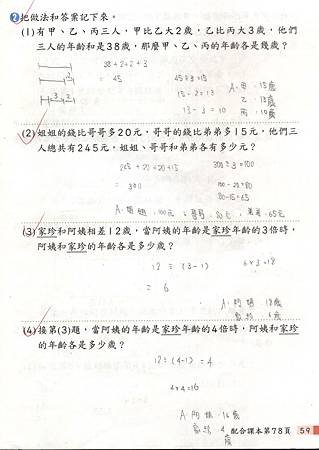 ❷把做法和答案記下來。
(1)有甲、乙、丙三人，甲比乙大2歲，乙比丙大3歲，他們
三人的年齡和是38歲，那麼甲、乙、丙的年齡各是幾歲？
38+2+2+3
= 45
45÷3=15
15-2=13
13-3=10
A：甲 15歲
乙 13歲
丙 10歲
(2)姐姐的錢比哥哥多20元，哥哥的錢比弟弟多15元，他們三
人總共有245元，姐姐、哥哥和弟弟各有多少元？
245+20+20+15
= 300
300÷3=100
100-20=80
80-15=65
A：姐姐 100元，哥哥 80元，弟弟 65元
(3)家珍和阿姨相差12歲，當阿姨的年齡是家珍年齡的3倍時，
阿姨和家珍的年齡各是多少歲？
12÷(3-1)
= 6
6×3=18
A：阿姨 18歲
家珍 6歲
(4)接第(3)題，當阿姨的年齡是家珍年齡的4倍時，阿姨和家珍
的年齡各是多少歲？
12÷(4-1)=4
4×4=16
A：阿姨 16歲
家珍 4歲
配合課本第78頁 59